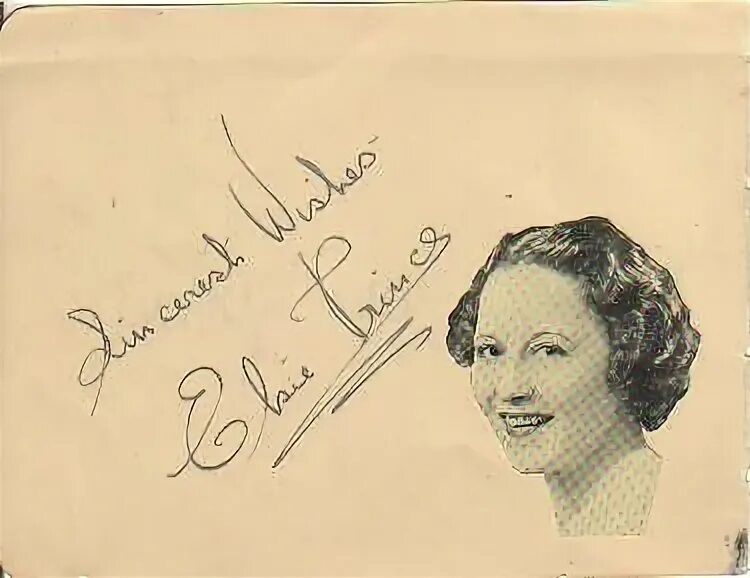 Sincerest Wishes
Elsie Prince